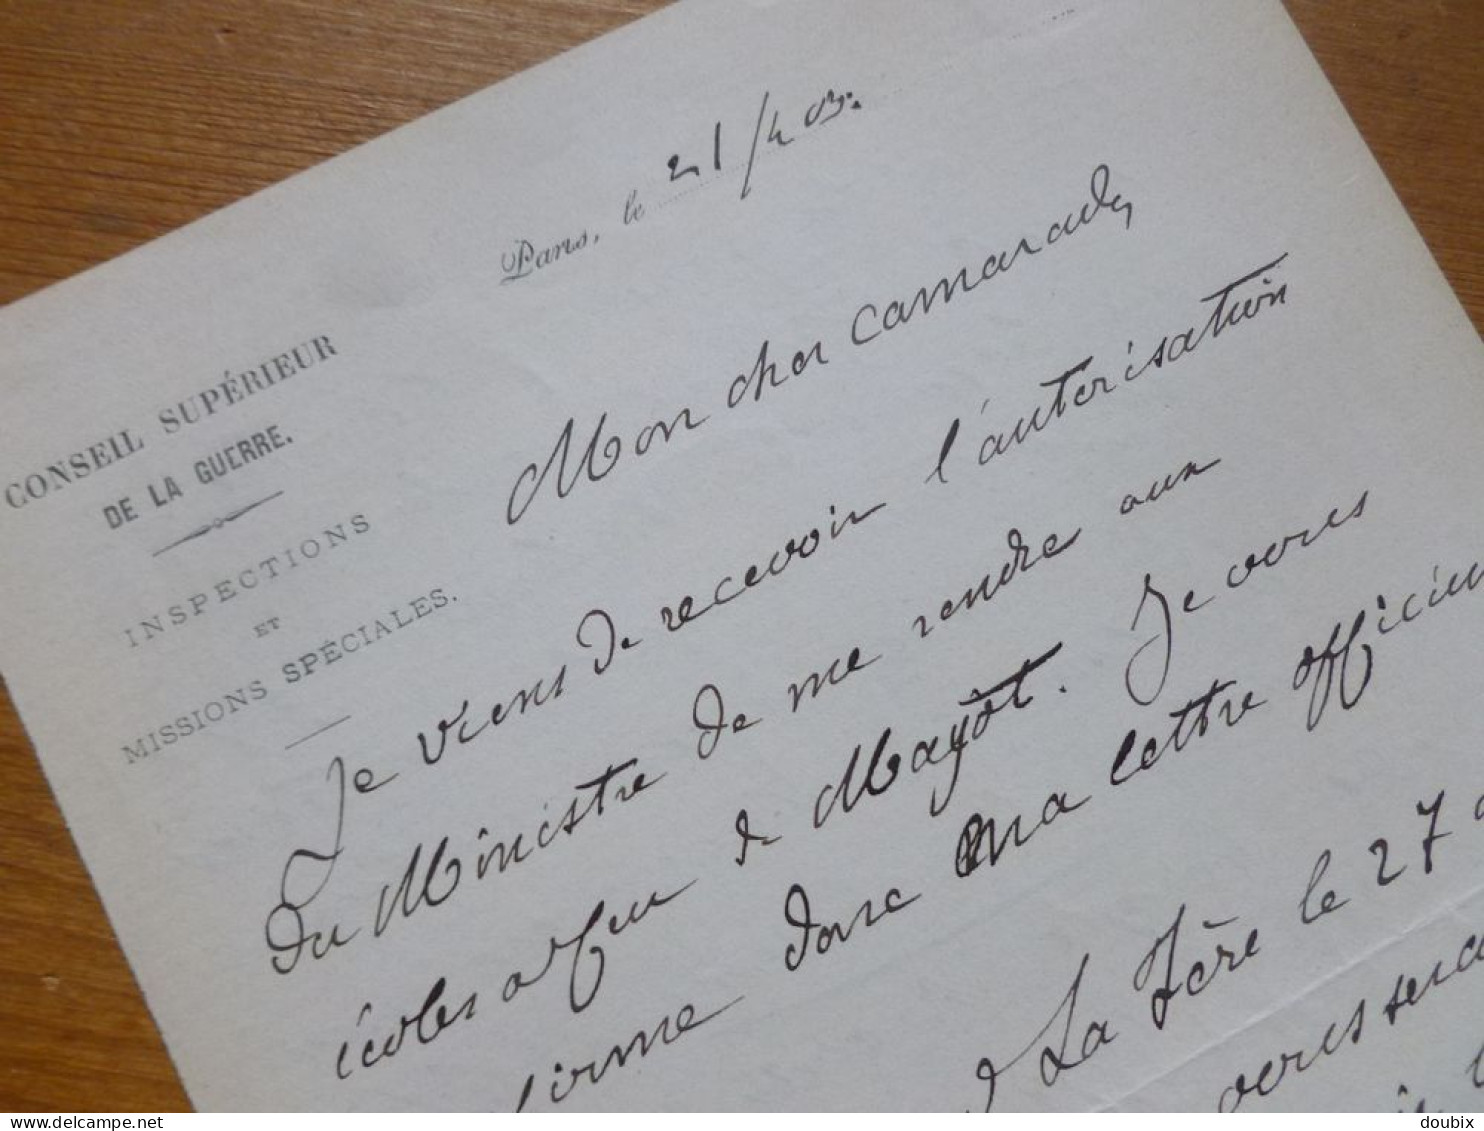 CONSEIL SUPÉRIEUR
DE LA GUERRE.
INSPECTIONS
ET
MISSIONS SPÉCIALES.
Paris, le 21/4 03.
Mon cher camarade
Je viens de recevoir l'autorisation
du Ministre de me rendre aux
écoles à feu de Mayot. Je vous
donc ma lettre officiell
La Fère le 27
vous serai
doubix